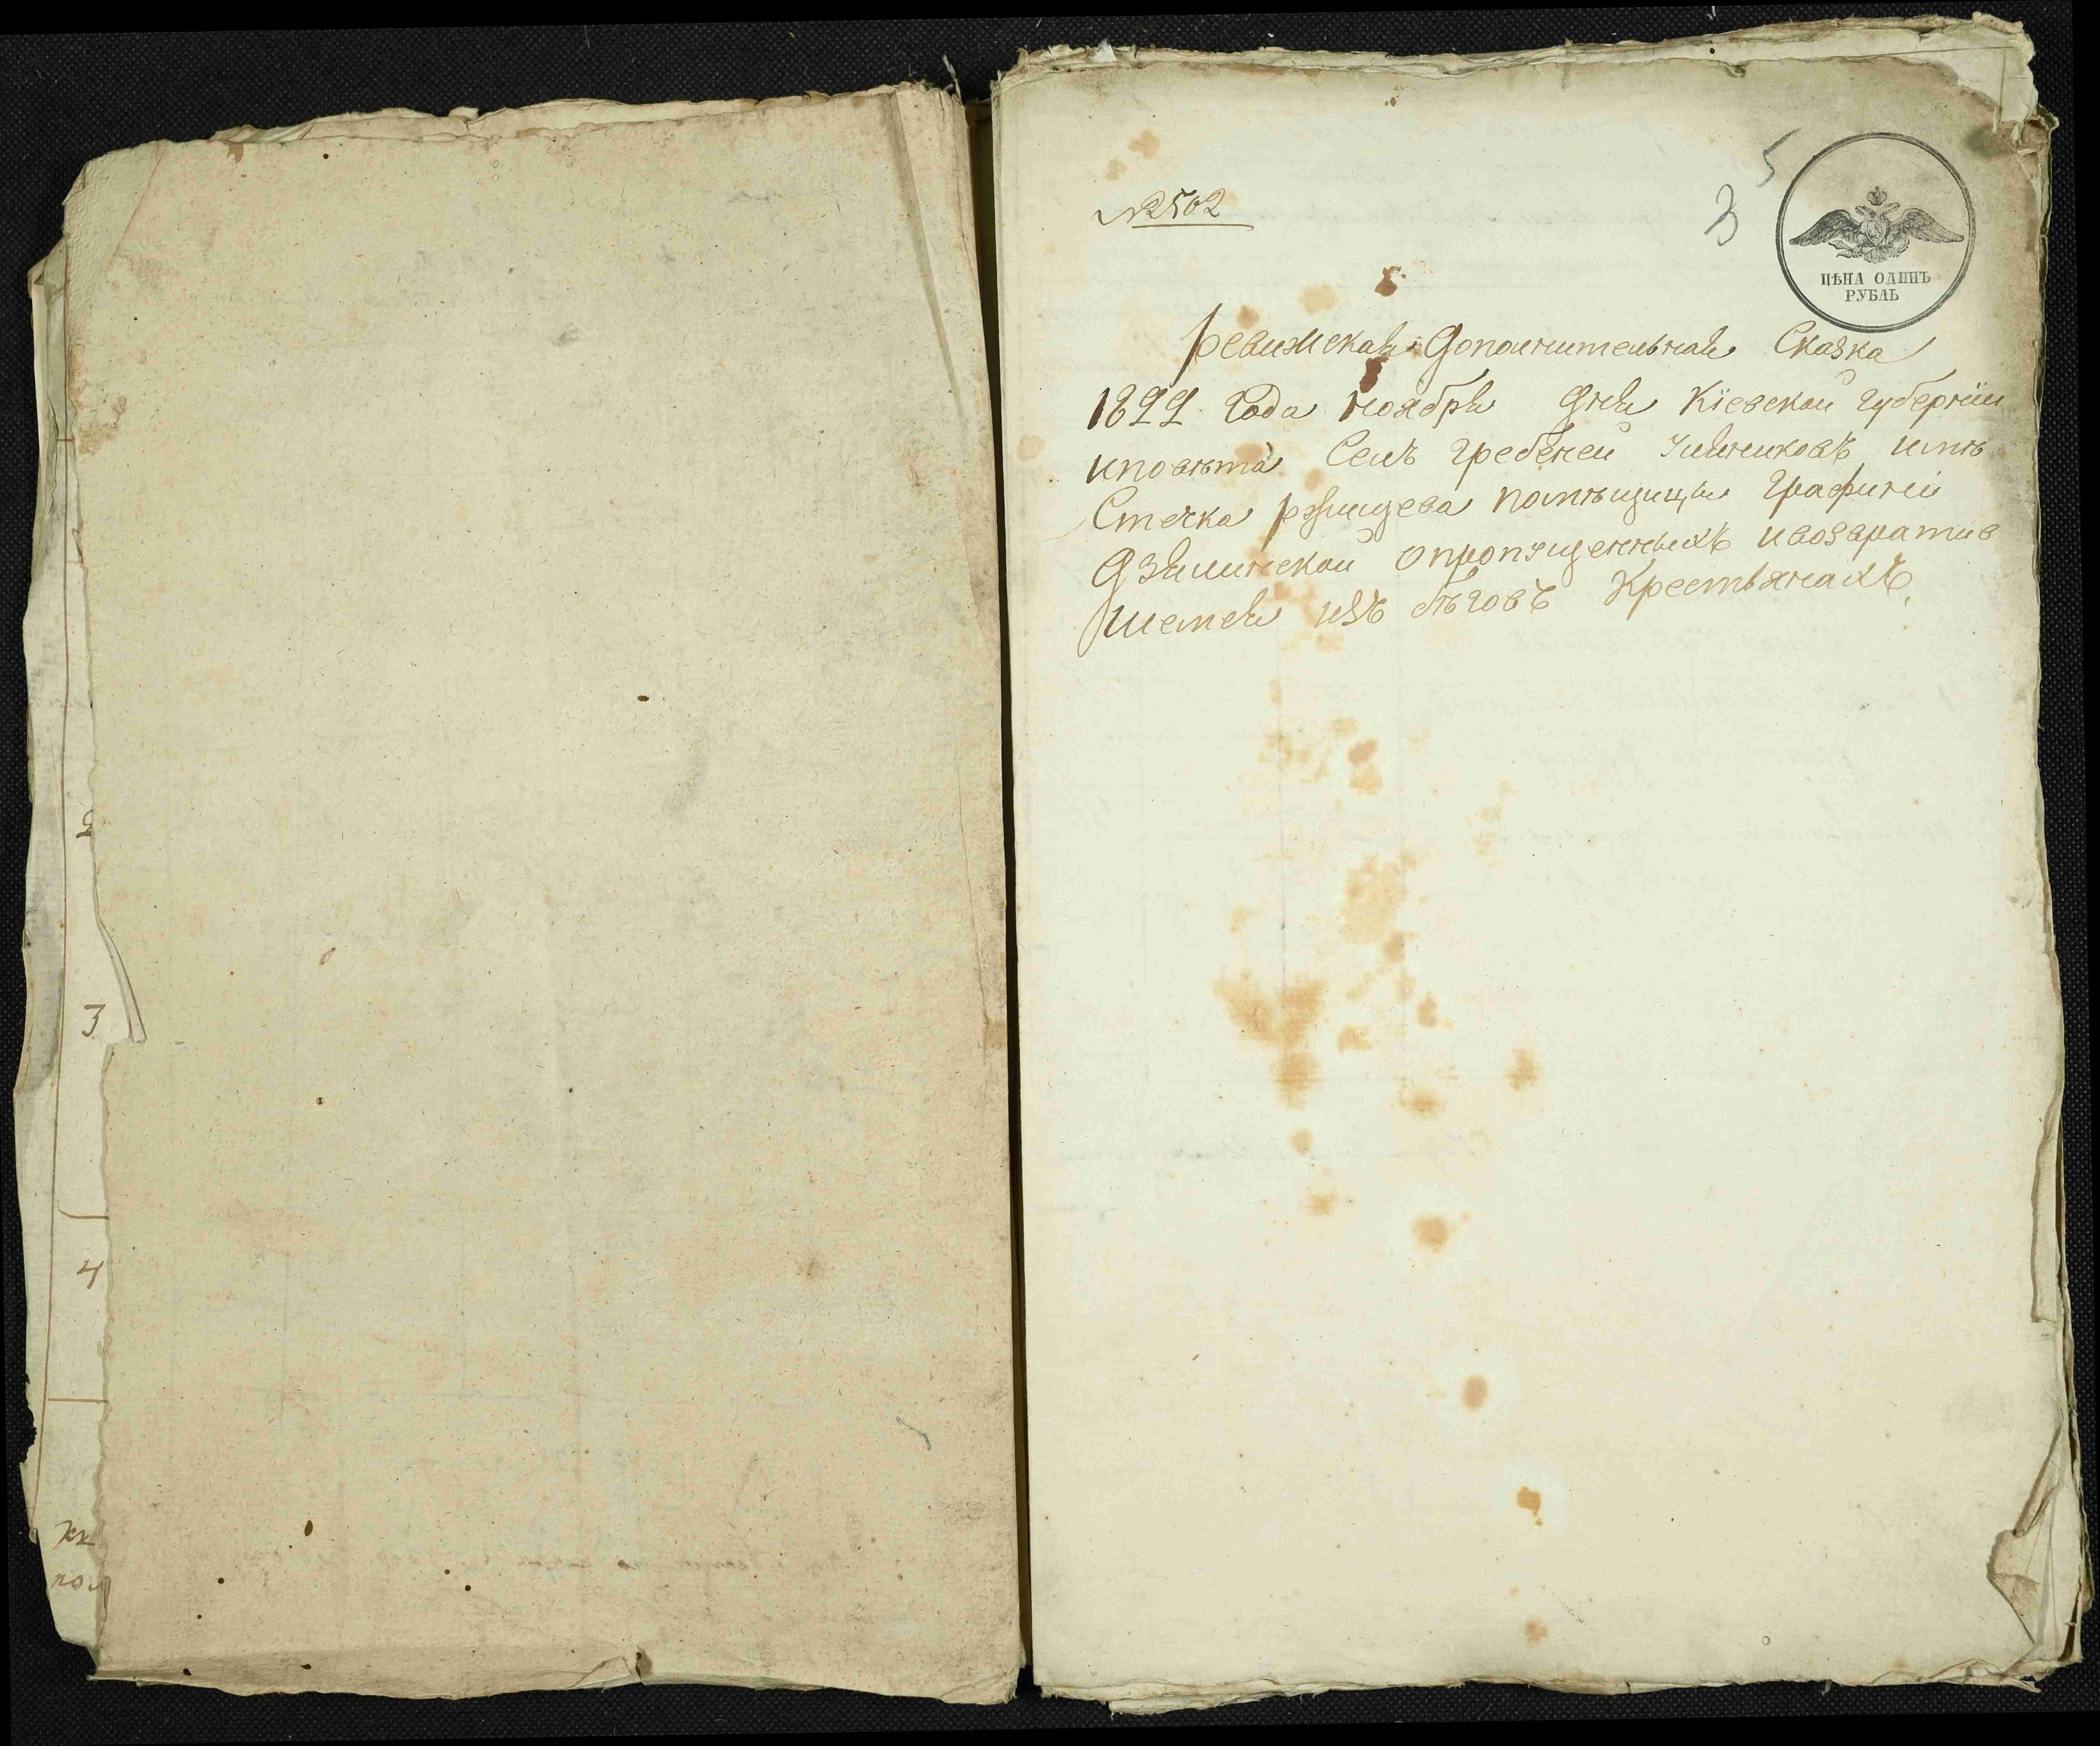 № 502
5
3
ЦѢНА ОДИНЪ
РУБЛЬ
ревижская Дополнительная Сказка
1822 Года ноября дня Кіевской губерніи
иповѣта Селъ гребеней имѣ
Стечка ржищева помѣщицы Графини
Дзялинской опропущенныхъ ивозвратив
шемся изъ бѣговъ Крестьянахъ,
2
3
4